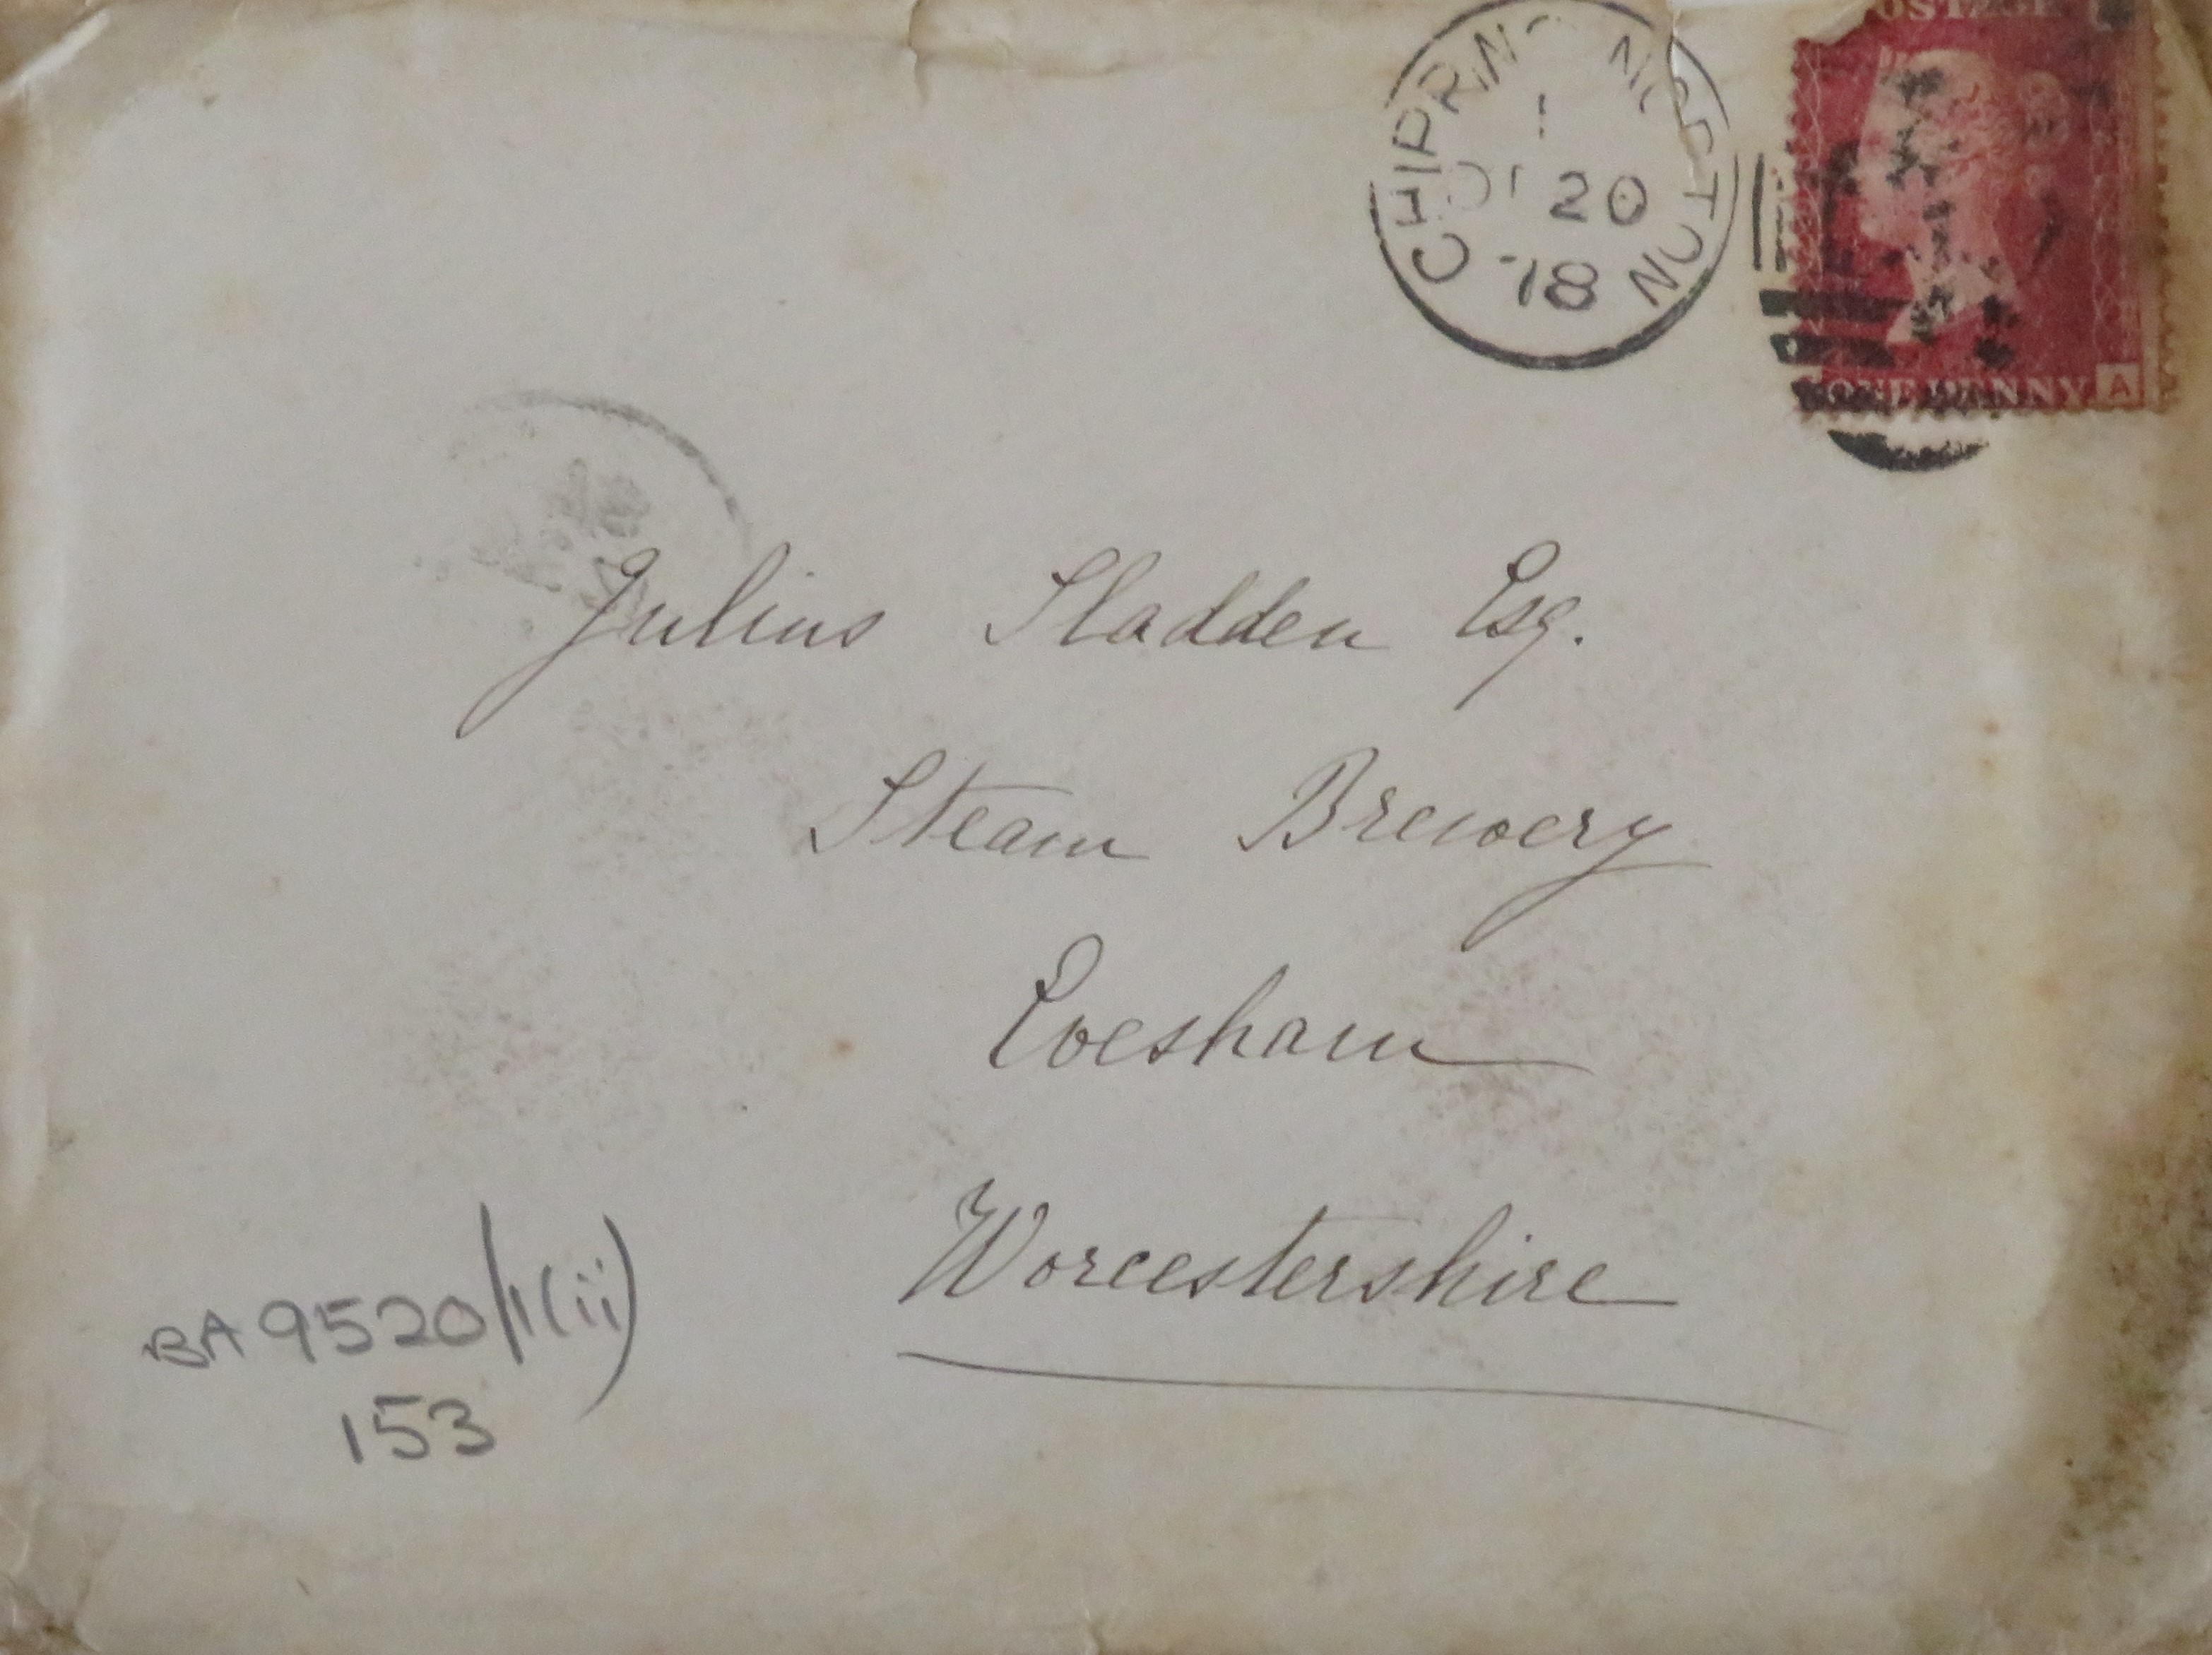 POSTAGE
CHIPPING NORTON
1
20
78
ONE PENNY A
Julius Sladden Esq.
Steam Brewery
Evesham
Worcestershire
BA 9520/1(ii)
153